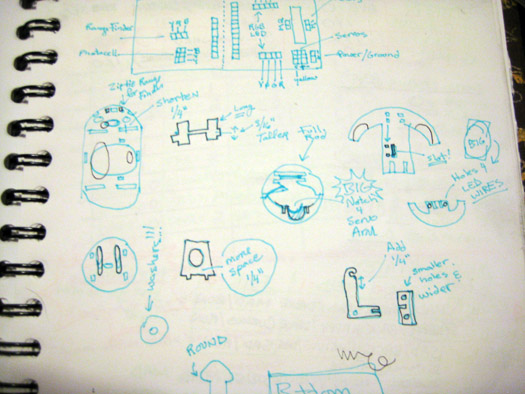 Range Finder
RGB
LED
Servos
Photocell
Power/Ground
Yellow
Zip Tie Range
Finder
Shorten
1/4"
Long
3/16"
Taller
Full
BIG
Notch
4
Servo
Arm
Slot!
BIG
Holes 4
LED
WIRES
washers!!!
more
space
1/4"
Add
1/4"
smaller
holes &
wider!
ROUND
Bottom